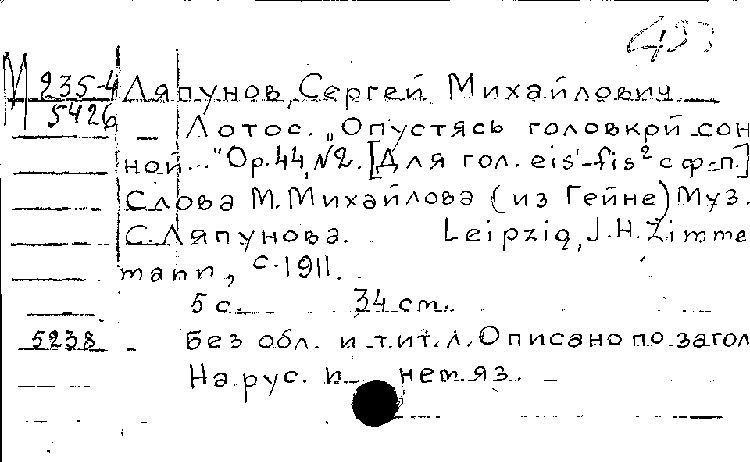 М 235-4 Ляпунов, Сергей Михайлович
5426 Лотос. „Опустясь головкой сон
ной..." Op. 44, №2. [Для гол. eis¹-fis² с ф-п.]
Слова М. Михайлова (из Гейне) Муз.
С. Ляпунова. Leipzig, J. H. Zimme
mann, c. 1911.
5 с. 34 cm.
5238 Без обл. и тит. л. Описано по загол
На рус. и нем яз.